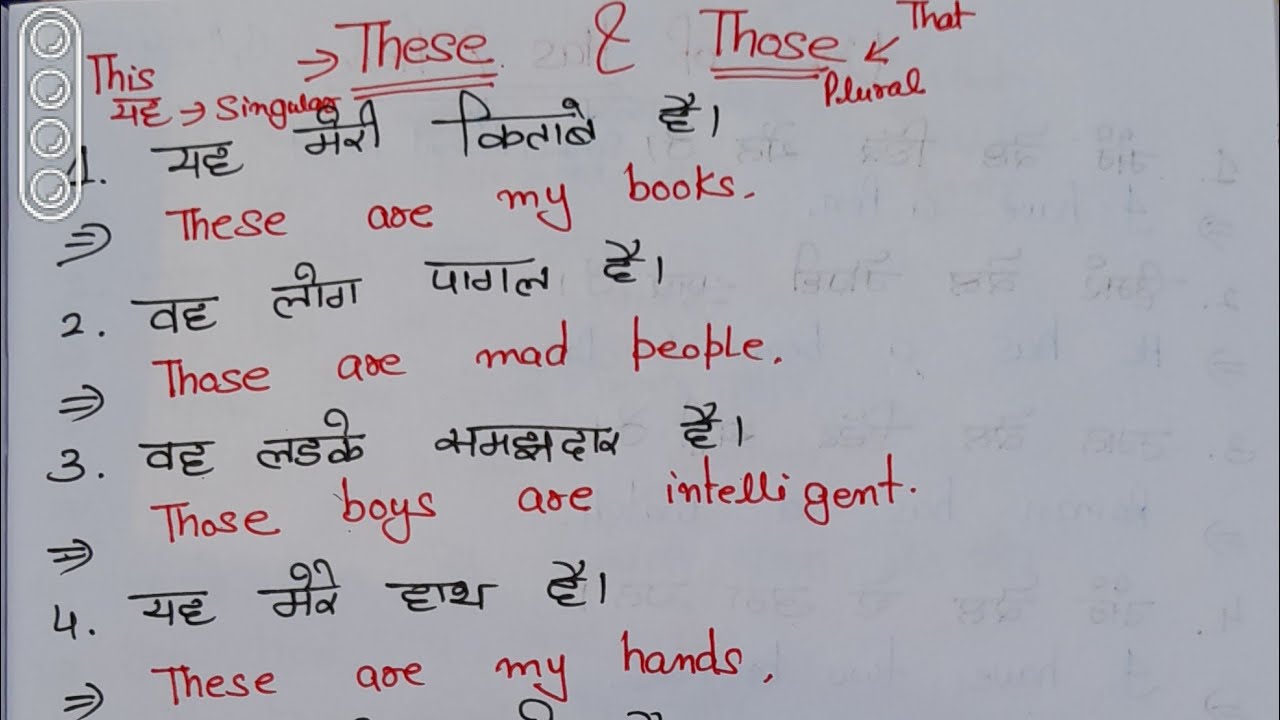 This → These & Those ← That
यह → Singular Plural
1. यह मेरी किताबे है।
⇒ These are my books.
2. वह लोग पागल है।
⇒ Those are mad people.
3. वह लडके समझदार है।
⇒ Those boys are intelligent.
4. यह मेरे हाथ है।
⇒ These are my hands.